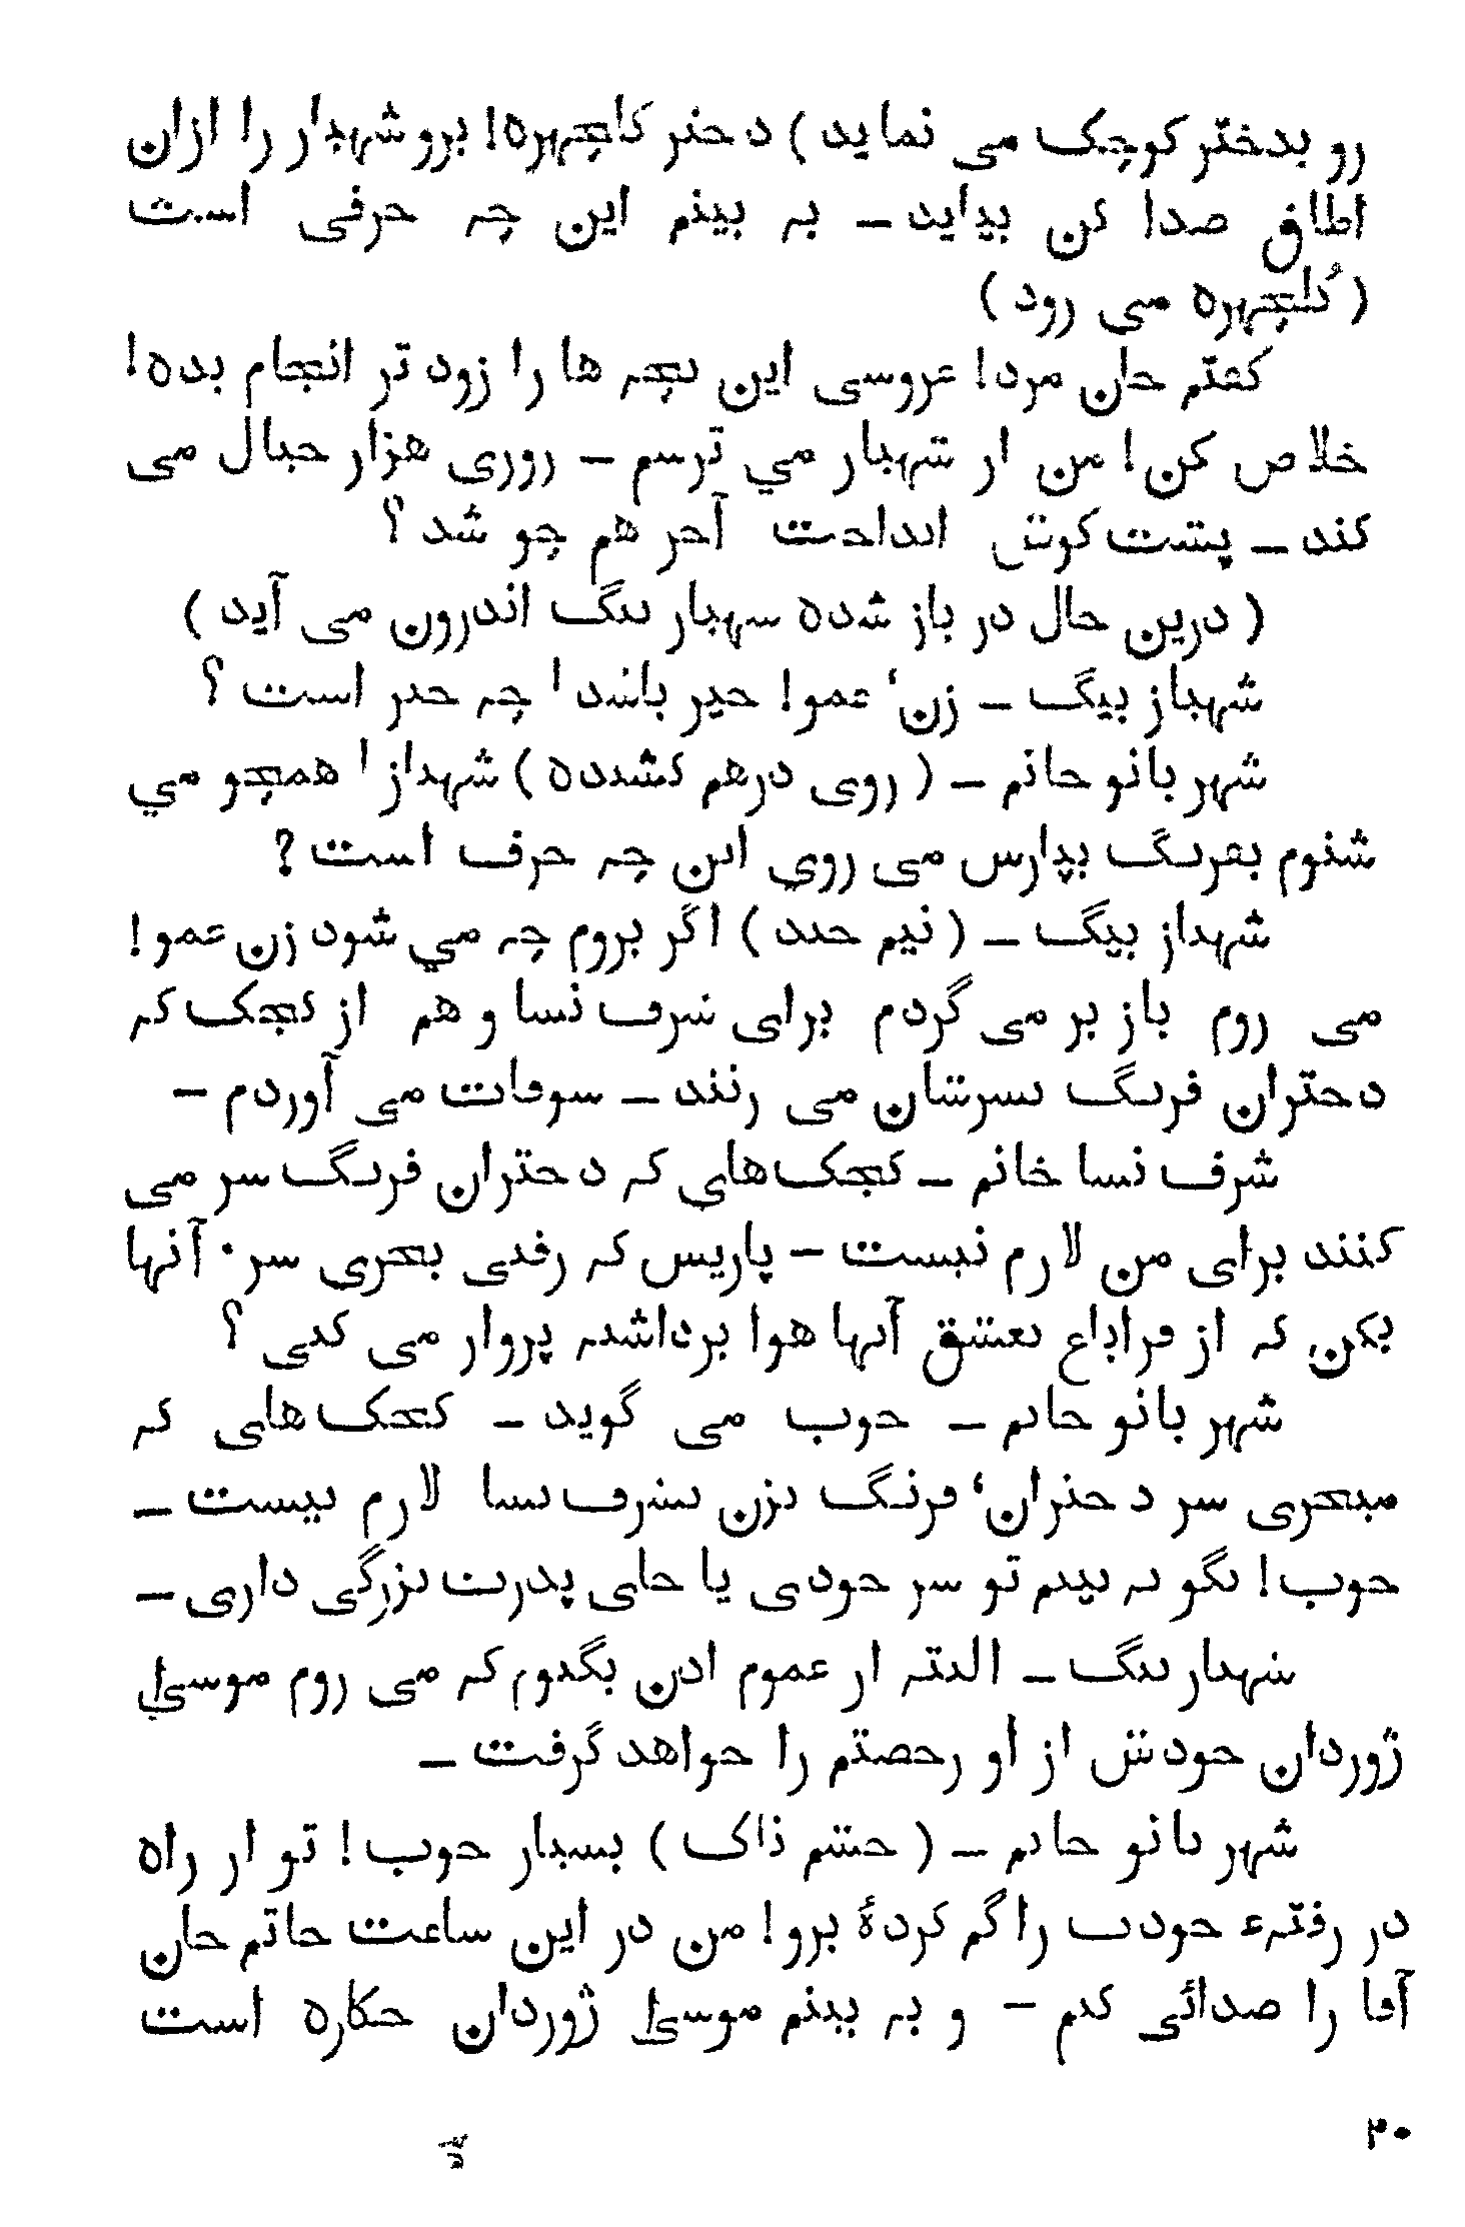 رو بدختر کوچک می نماید ) دختر گلچهره! برو شهباز را ازان
اطاق صدا کن بیاید ــ به بینم این چه حرفی است
( گلچهره می رود )
گفتم خان مرد! عروسی این بچه ها را زود تر انجام بده!
خلاص کن! من از شهباز می ترسم ــ روزی هزار خیال می
کند ــ پشت گوش انداخت آخر هم چو شد ؟
( درین حال در باز شده شهباز بیگ اندرون می آید )
شهباز بیگ ــ زن‘ عمو! خیر باشد ! چه خبر است ؟
شهر بانو خانم ــ ( روی درهم کشیده ) شهباز ! همچو می
شنوم بفرنگ بپارس می روی این چه حرف است ?
شهباز بیگ ــ ( نیم خند ) اگر بروم چه می شود زن عمو !
می روم باز بر می گردم برای شرف نسا و هم از کجک که
دختران فرنگ بسرشان می زنند ــ سوغات می آوردم ــ
شرف نسا خانم ــ کجک‌های که دختران فرنگ سر می
کنند برای من لازم نیست ــ پاریس که رفتی بخری سر آنها
بکن که از فراباغ بعشق آنها هوا برداشته پرواز می کنی ؟
شهر بانو خانم ــ خوب می گوید ــ کجک های که
میخری سر دختران‘ فرنگ بزن بشرف نسا لازم نیست ــ
خوب! بگو به بینم تو سر خودی یا جای پدرت بزرگی داری ــ
شهباز بیگ ــ البته از عموم اذن بگیوم که می روم موسیٰ
ژوردان خودش از او رخصتم را خواهد گرفت ــ
شهر بانو خانم ــ ( خشم ناک ) بسیار خوب! تو از راه
در رفتهٔ خودت را گم کردهٔ برو! من در این ساعت حاتم خان
آقا را صدائی کنم ــ و به بینم موسیٰ ژوردان چکاره است
۲۰